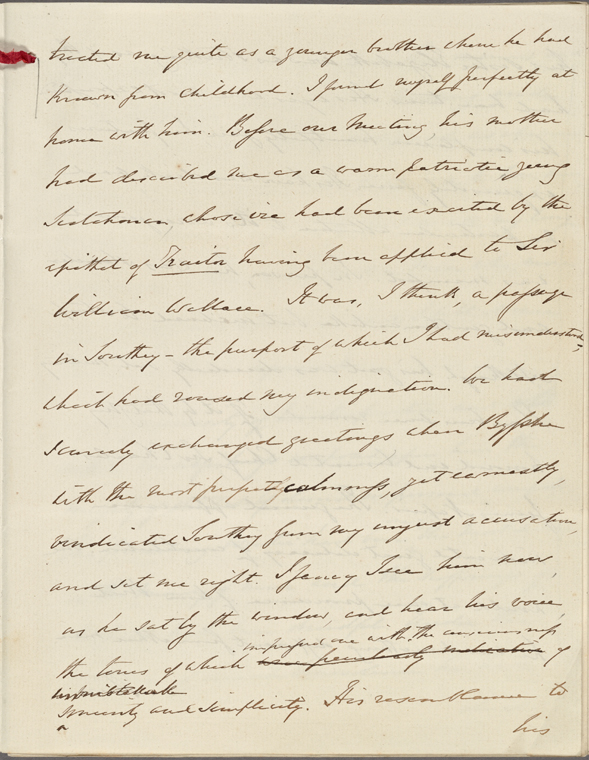 treated me quite as a younger brother whom he had
known from childhood. I found myself perfectly at
home with him. Before our Meeting, his mother
had described me as a warm patriotic young
Scotchman, whose ire had been excited by the
epithet of Traitor having been applied to Sir
William Wallace. It was, I think, a passage
in Southey – the purport of which I had misunderstood,
which had roused my indignation. We had
scarcely exchanged greetings when Bysshe
with the most perfect calmness, yet earnestly,
vindicated Southey from my unjust accusation,
and set me right. I fancy I see him now,
as he sat by the window, and hear his voice,
impressed one with the consciousness
the tones of which were peculiarly indicative of
unmistakable
sincerity and simplicity. His resemblance to
his